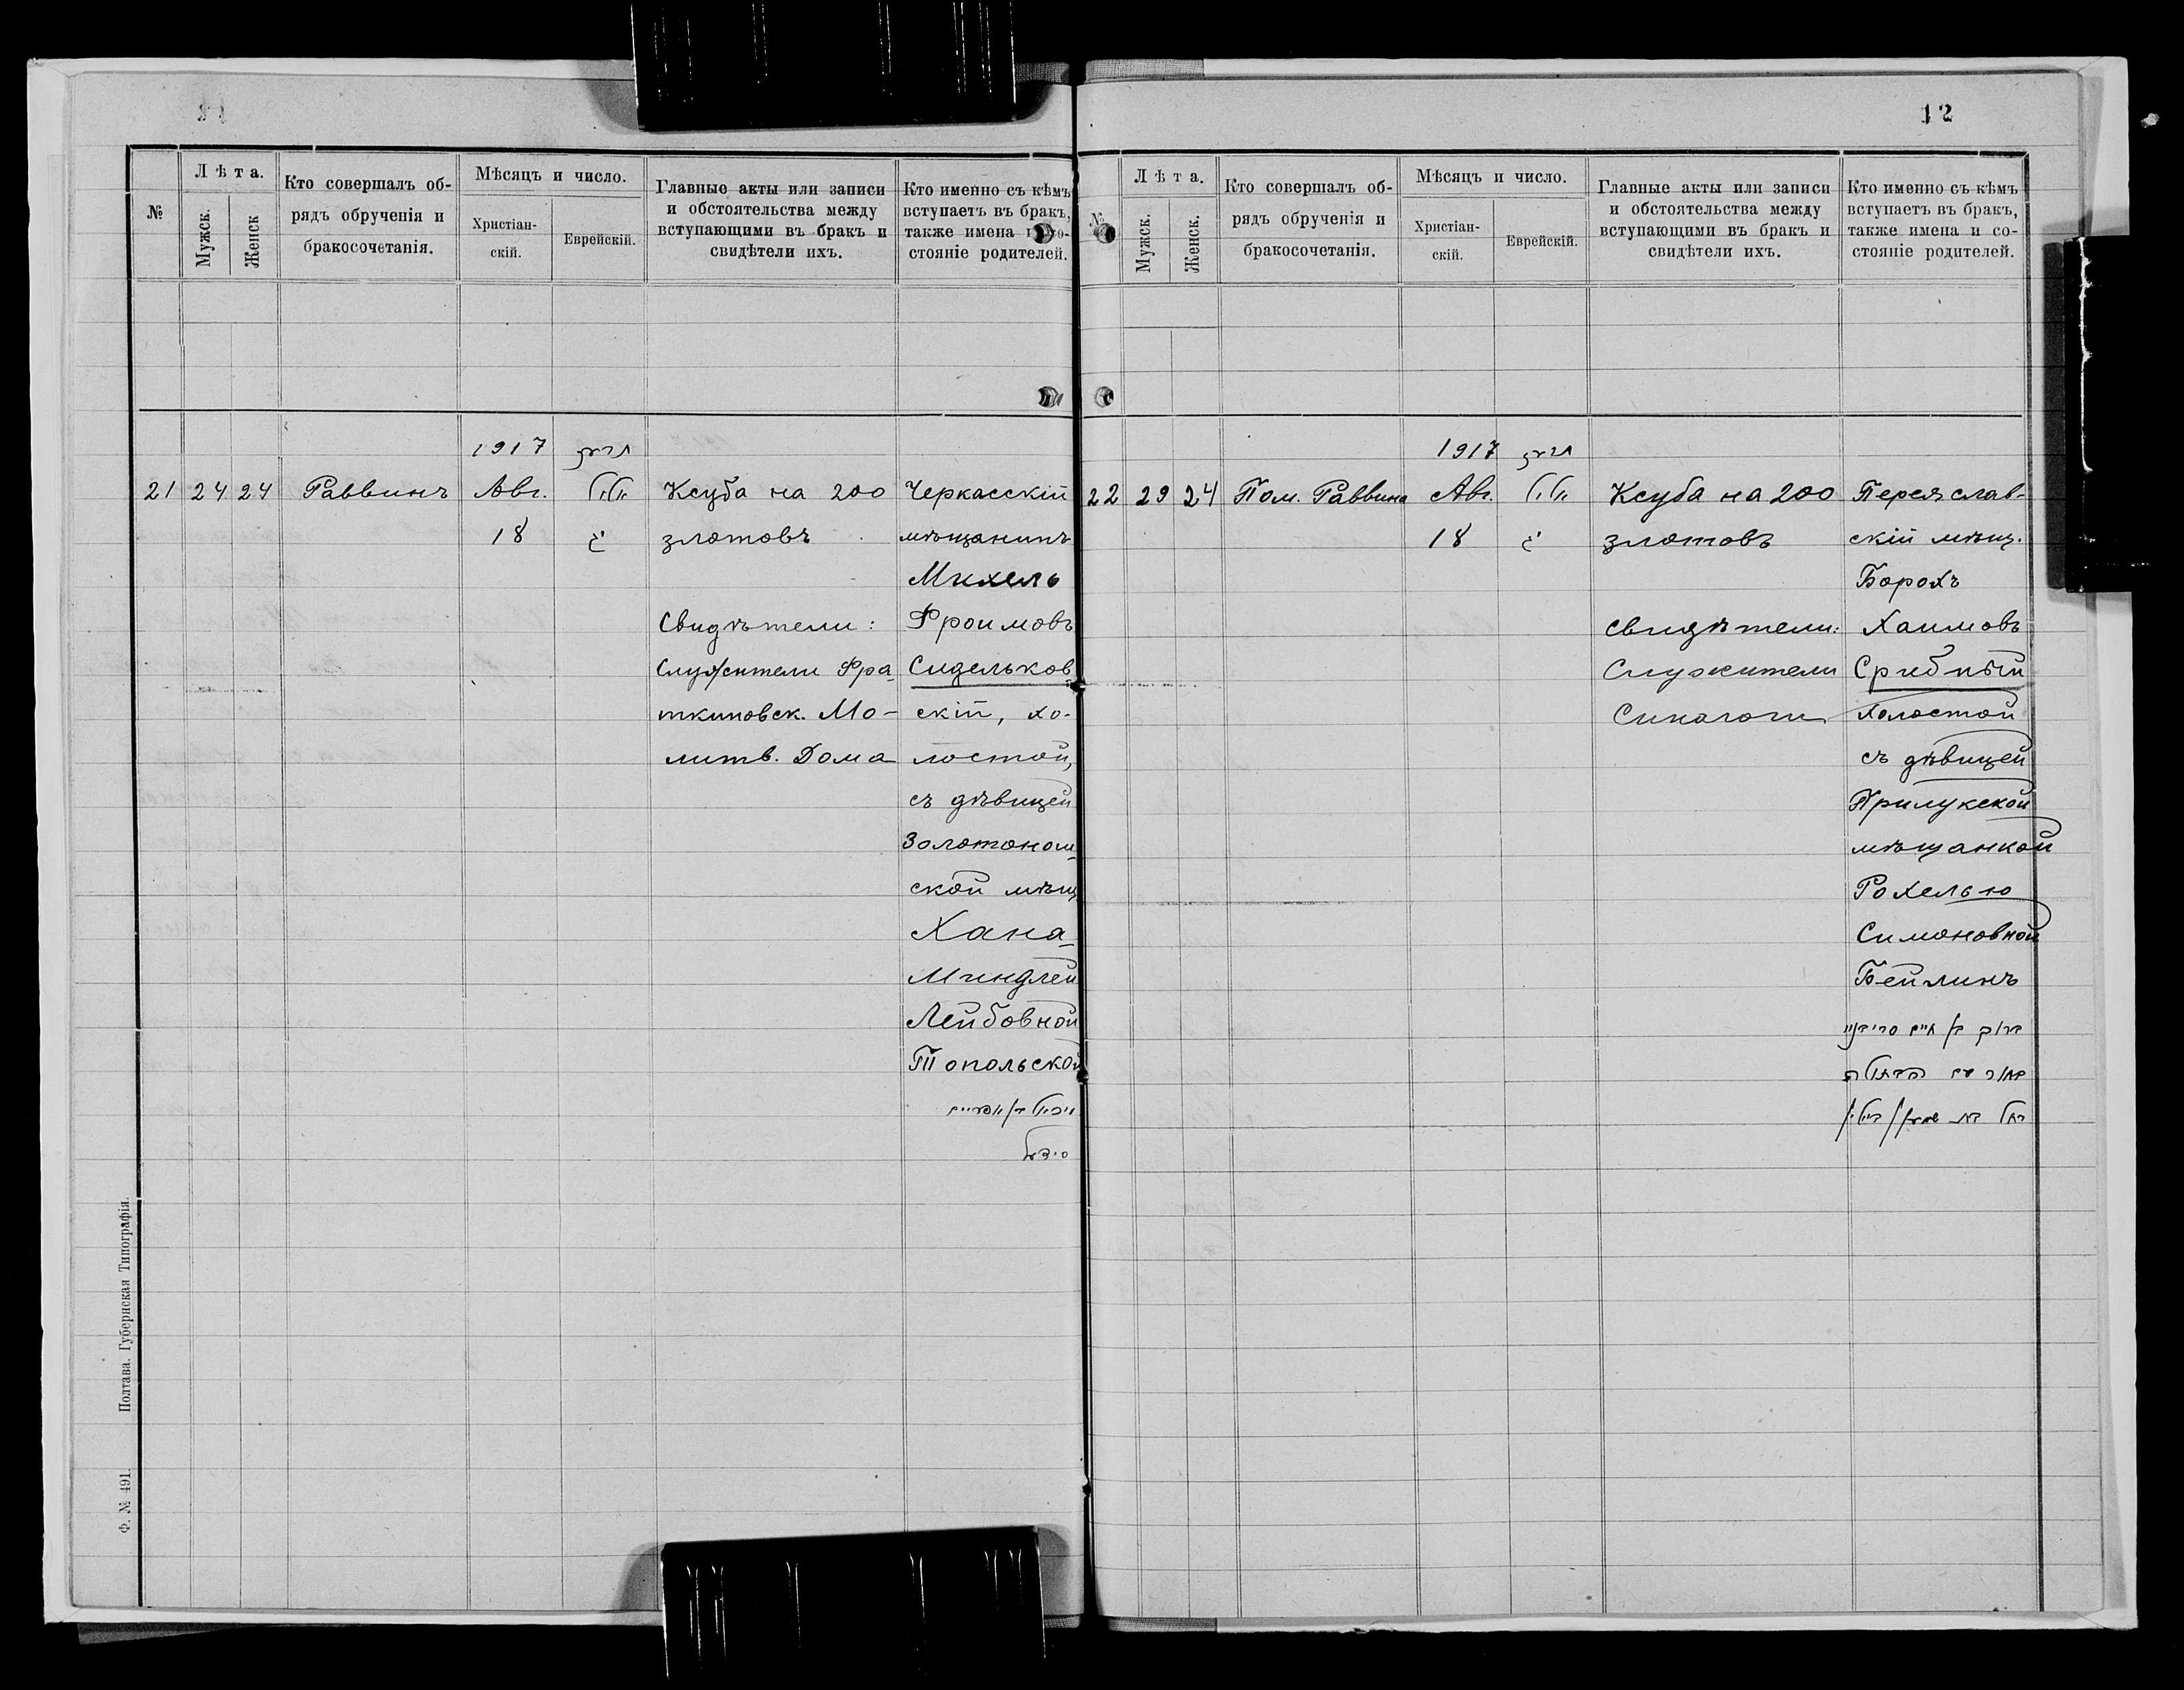 12
№
Лѣта.
Мужск.
Женск
Кто совершалъ об-
рядъ обрученія и
бракосочетанія.
Мѣсяцъ и число.
Христіан-
скій.
Еврейскій.
Главные акты или записи
и обстоятельства между
вступающими въ бракъ и
свидѣтели ихъ.
Кто именно съ кѣмъ
вступаетъ въ бракъ,
также имена
стояніе родителей.
1917
21 24 24 Раввинъ Авг.
18
Ксуба на 200
злотовъ
Свидѣтели:
Служители Фра-
ткиновск. Мо-
литв. Дома
Черкасскій
мѣщанинъ
Михель
Фроимовъ
Сидельков-
скій, хо-
лостой,
съ дѣвицей
Золотонош-
ской мѣщ.
Хана-
Миндлей
Лейбовной
Топольской
Ф. № 491. Полтава. Губернская Типографія.
№
Лѣта.
Мужск.
Женск.
Кто совершалъ об-
рядъ обрученія и
бракосочетанія.
Мѣсяцъ и число.
Христіан-
скій.
Еврейскій.
Главные акты или записи
и обстоятельства между
вступающими въ бракъ и
свидѣтели ихъ.
Кто именно съ кѣмъ
вступаетъ въ бракъ,
также имена и со-
стояніе родителей.
1917
22 29 24 Пом. Раввина Авг.
18
Ксуба на 200
злотовъ
Свидѣтели:
Служители
Синагоги
Переяслав-
скій мѣщ.
Борохъ
Хаимовъ
Срибный
холостой
съ дѣвицей
Прилукской
мѣщанкой
Рохелью
Симоновной
Бейлинъ